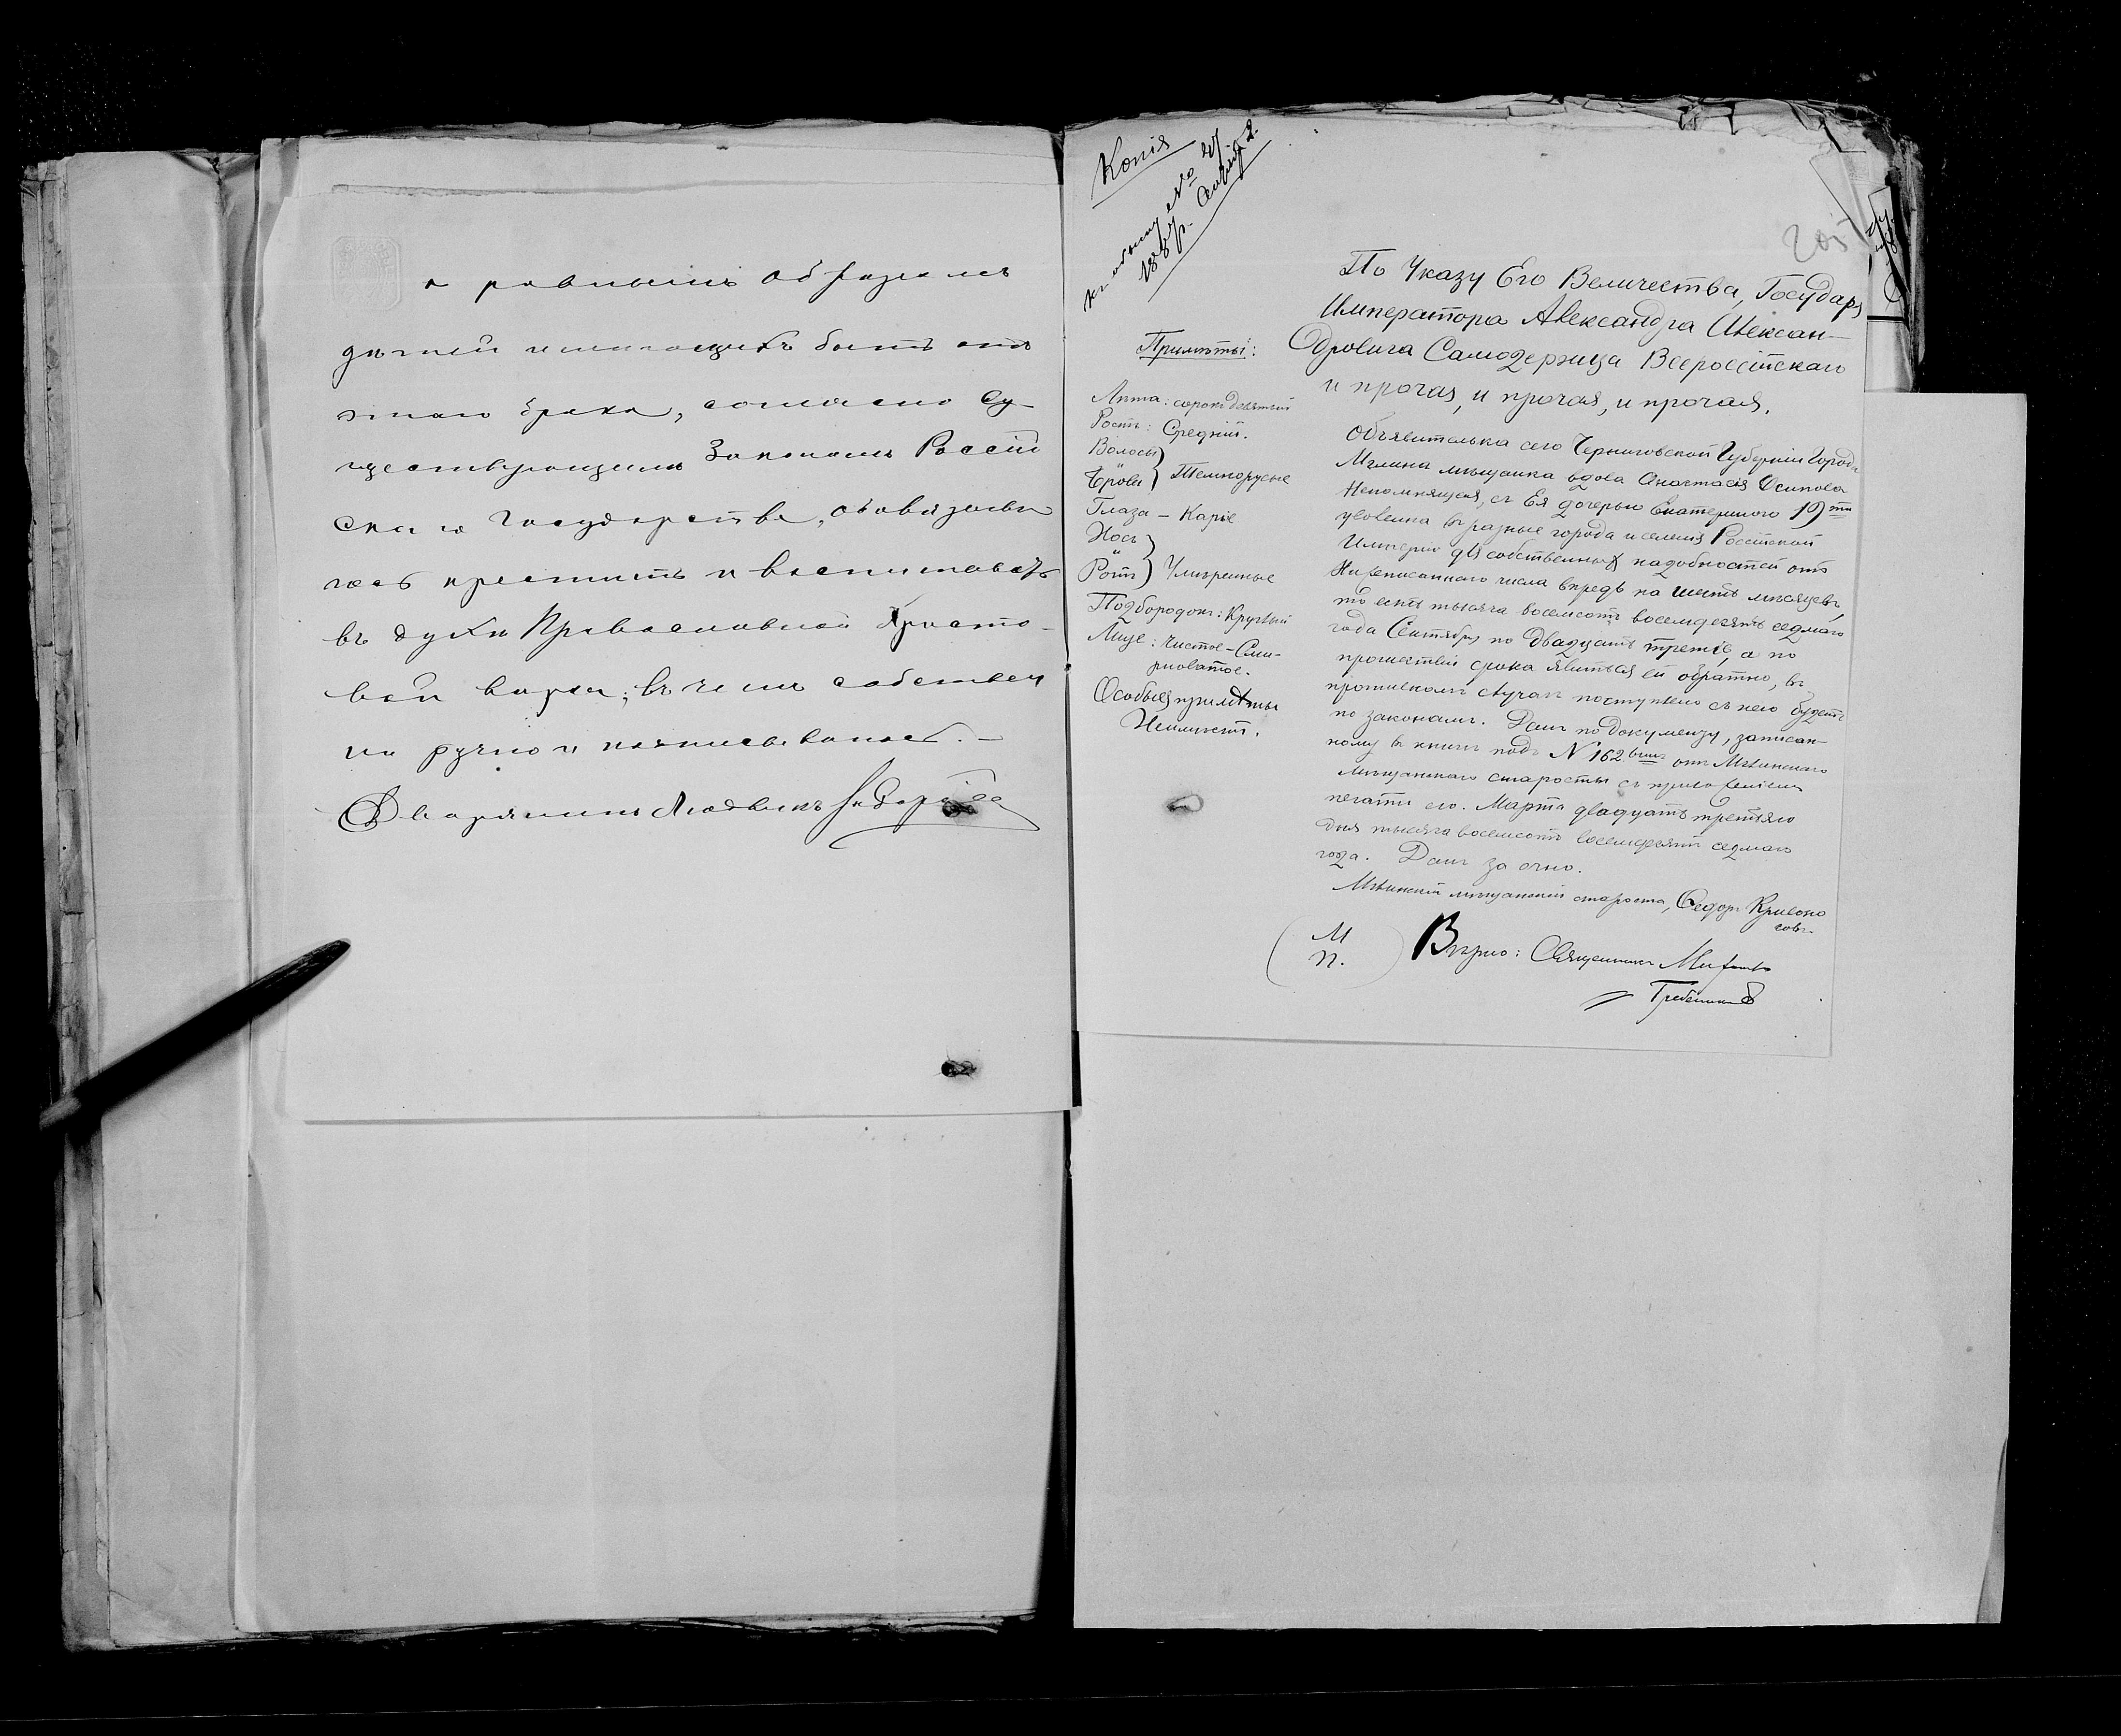 а равнымъ образомъ
дѣтей имѣющихъ быть отъ
этаго брака, согласно су-
ществующимъ Законамъ Россій
скаго Государства, обовязываю
юсь крестить и воспитовать
въ духѣ Православной Христо-
вой вѣры; въ чемъ собствен
но ручно и подписываюсь. —
Дворянинъ Людвикъ
Копія
къ обыску № 21
1887 г.
Примѣты:
Лѣта: сорокъ девятый
Ростъ: Средній.
Волосы
Брови } Темнорусые
Глаза - Каріе
Носъ
Ротъ } Умѣренные
Подбородокъ: Круглый
Лице: Чистое-Сму-
гловатое.
Особыя примѣты
Неимѣетъ.
205
По Указу Его Величества, Государя
Императора Александра Алексан-
дровича Самодержца Всероссійскаго
и прочая, и прочая, и прочая.
Объявителька сего Черниговской Губерніи Города
Мглина мѣщанка вдова Анастасія Осипова
Непомнящая, съ Ея дочерью Екатериною 19ти
уволенна въ разные города и селенія Россійской
Имперіи для собственныхъ надобностей отъ
Нижеписаннаго числа впредь на шесть мѣсяцевъ,
то есть тысяча восемсотъ восемдесятъ седмаго
года Сентября по двадцать третіе, а по
прошествіи срока явиться ей обратно, въ
противномъ случаѣ поступлено съ нею будетъ
по законамъ. Данъ по документу, записан-
ному въ книгѣ подъ N 162 отъ Мглинскаго
мѣщанскаго старосты съ приложеніемъ
печати его. Марта двадцать третьяго
дня тысяча восемсотъ восемдесятъ седмаго
года. Данъ за очно.
Мглинскій мѣщанскій староста, Федоръ Кривоно
совъ.
М
П.
Вѣрно: Священникъ Михаилъ
Гребенниковъ